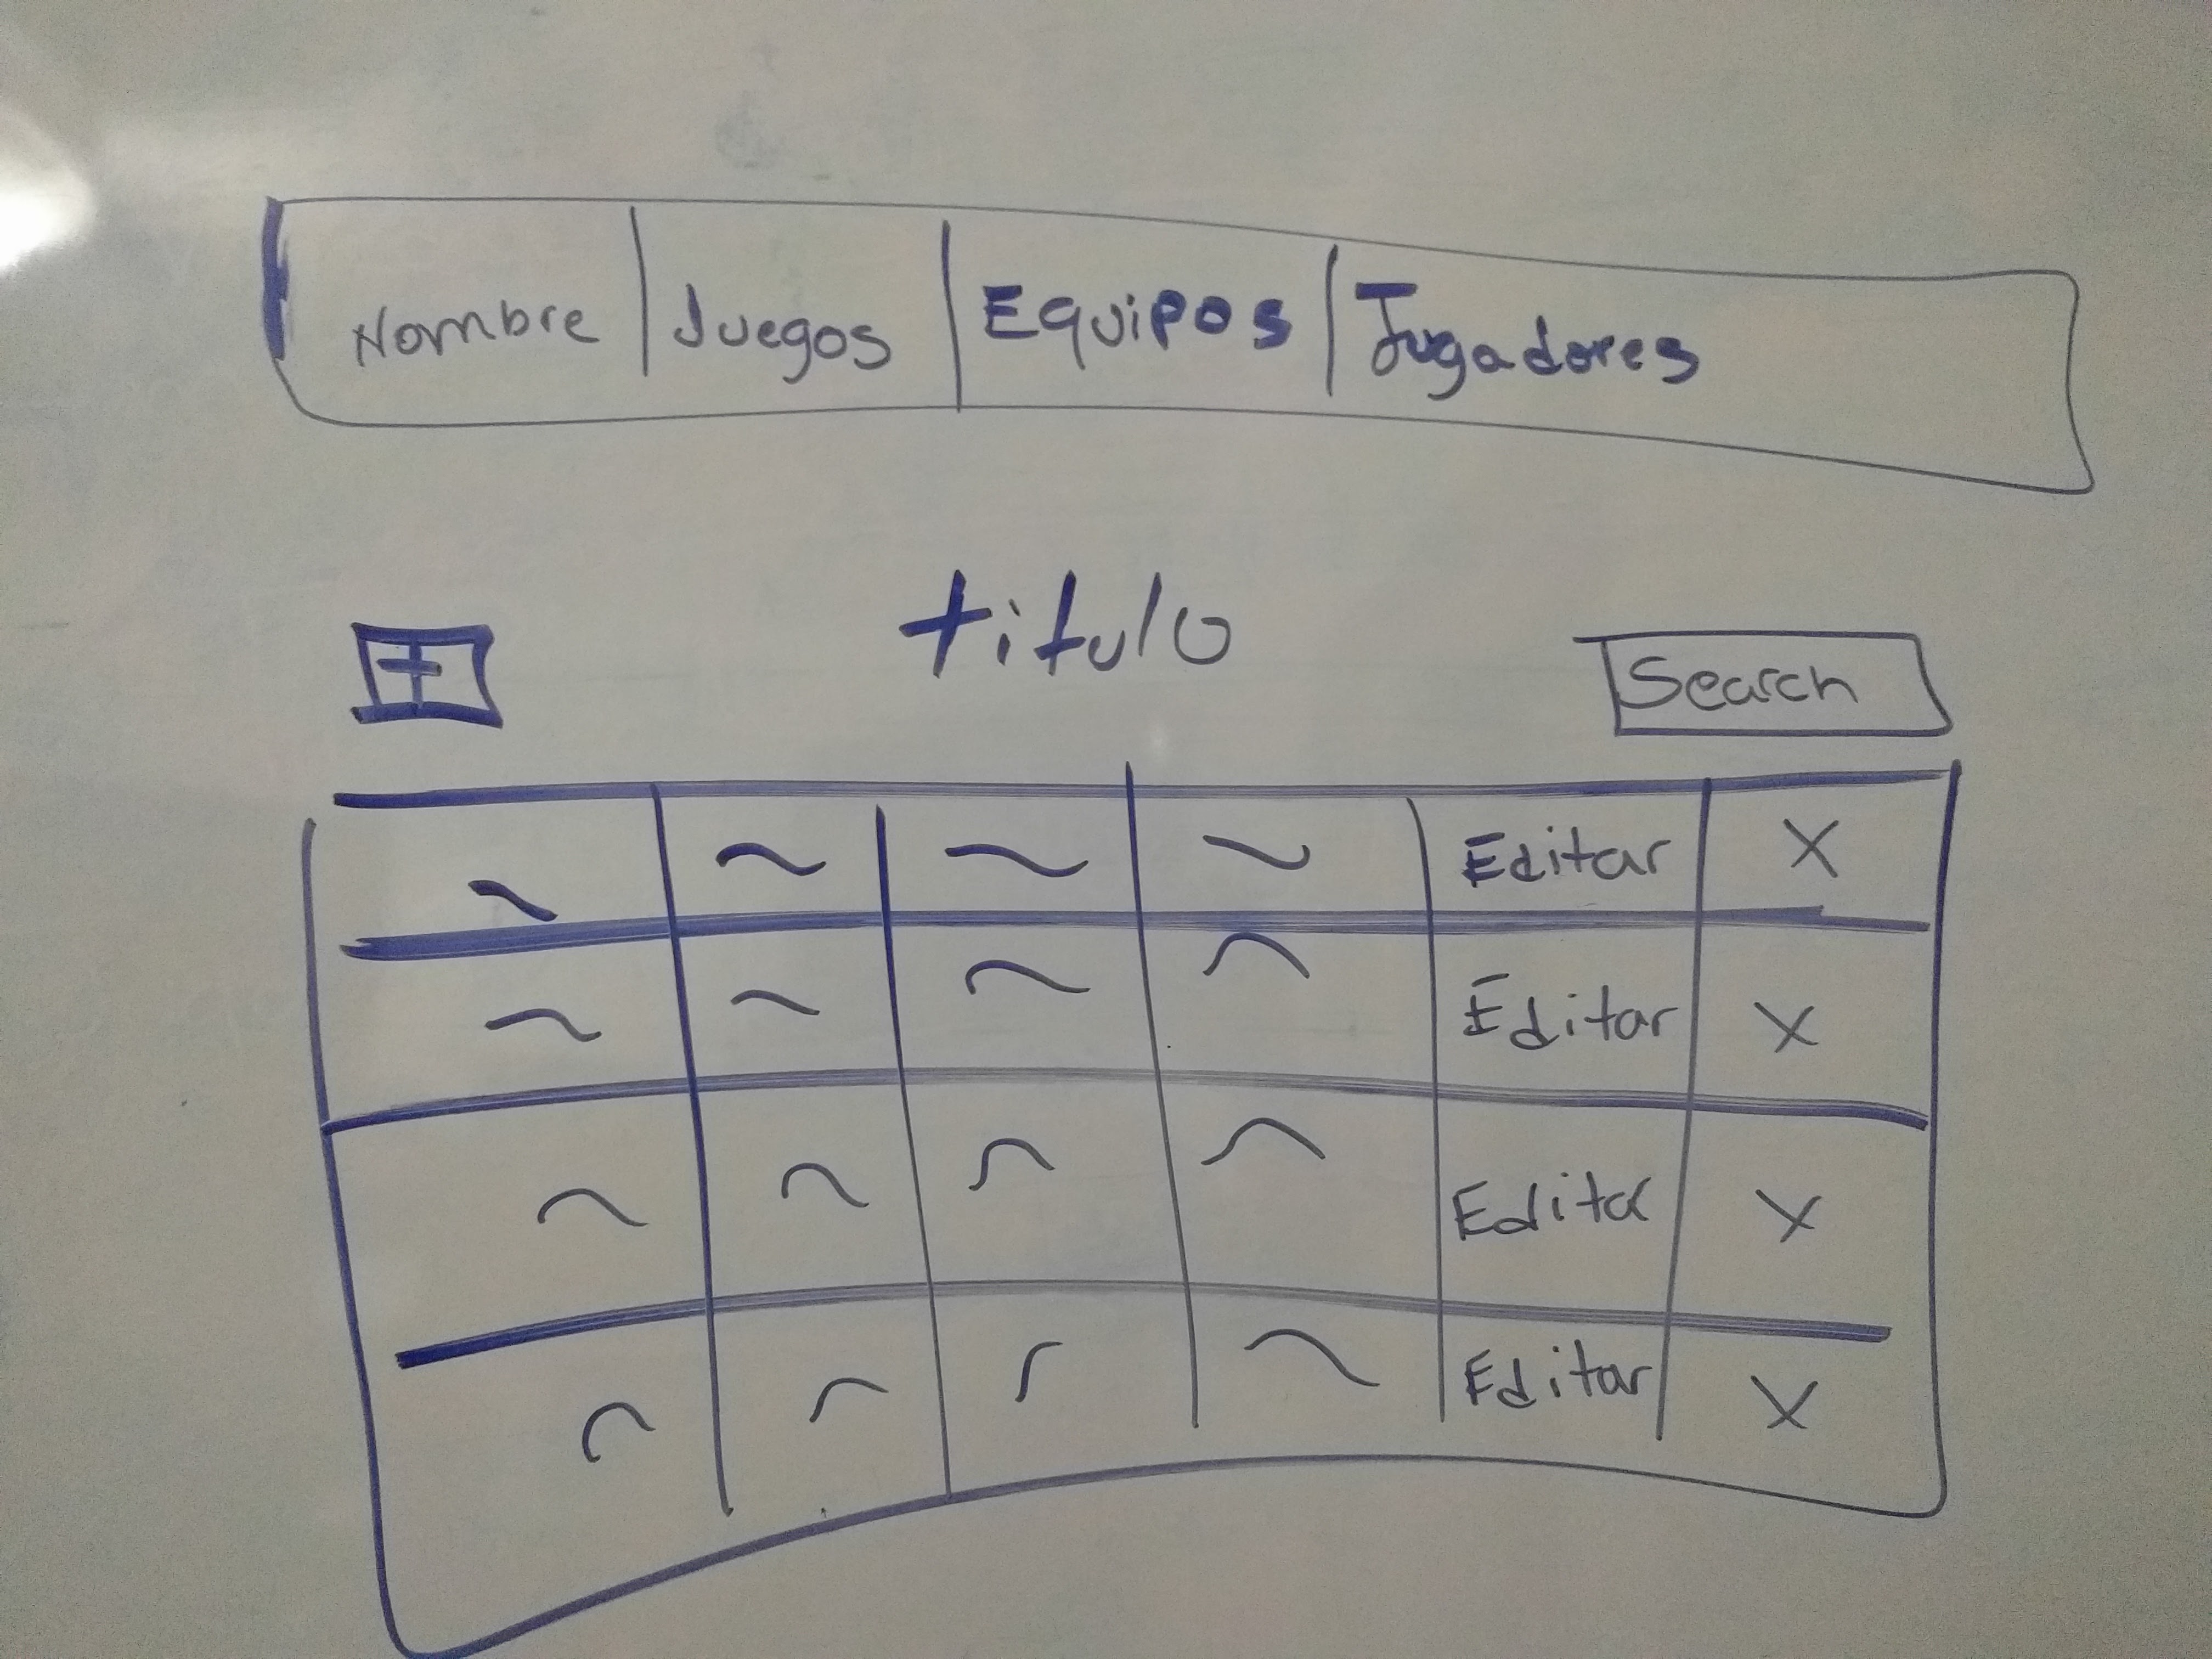 Nombre Juegos Equipos Jugadores
+ titulo Search
Editar X
Editar X
Editar X
Editar X